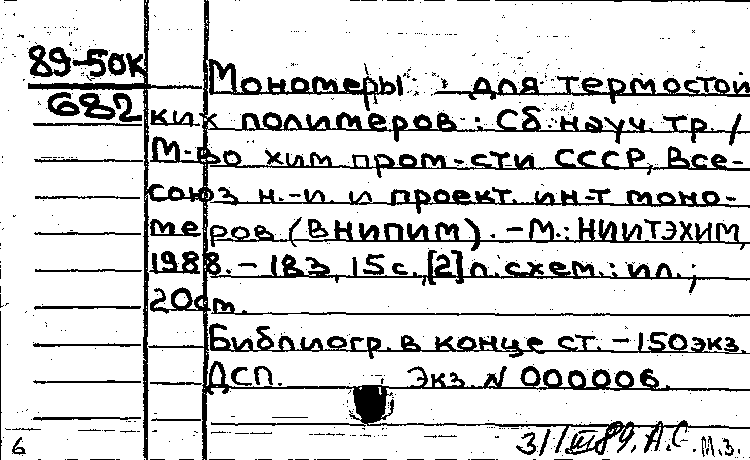 89-50К
682
Мономеры для термостой
ких полимеров : Сб. науч. тр. /
М-во хим пром-сти СССР, Все-
союз н.-и. и проект. ин-т моно-
меров (ВНИПИМ). - М.: НИИТЭХИМ,
1988. - 183, 15 с., [2] л. схем. : ил. ;
20 см.
Библиогр. в конце ст. - 150 экз.
ДСП. Экз. N 000006.
31/III 89. А.С. м.з.
6